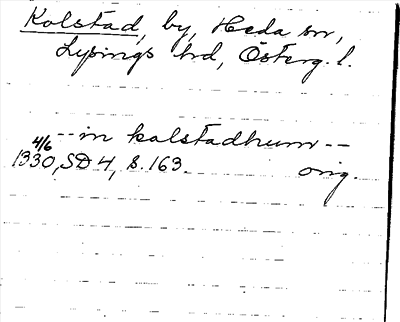 Kolstad, by, Heda sn,
Lysings hd, Österg. l.
-- in kolstadhum --
4/6
1330, SD 4, s. 163. orig.